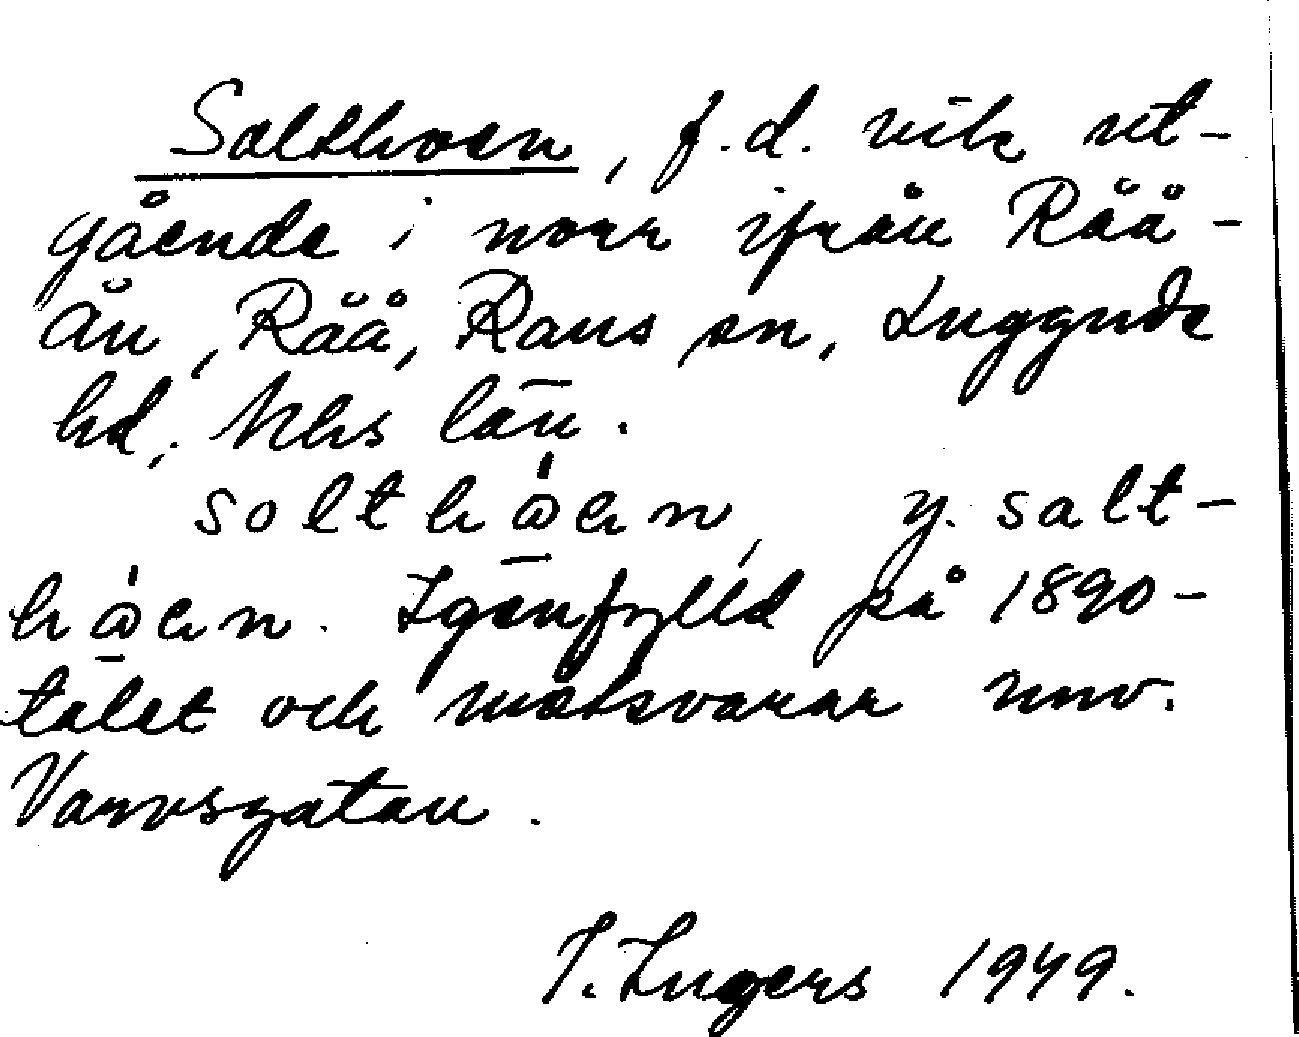 Salthoen, f.d. vik ut-
gående i norr ifrån Råå-
ån, Råå, Raus sn, Luggude
hd, Mhs län.
y. salt-
Igenfylld på 1890-
talet och motsvarar nuv.
Varvsgatan.
I. Ingers 1949.